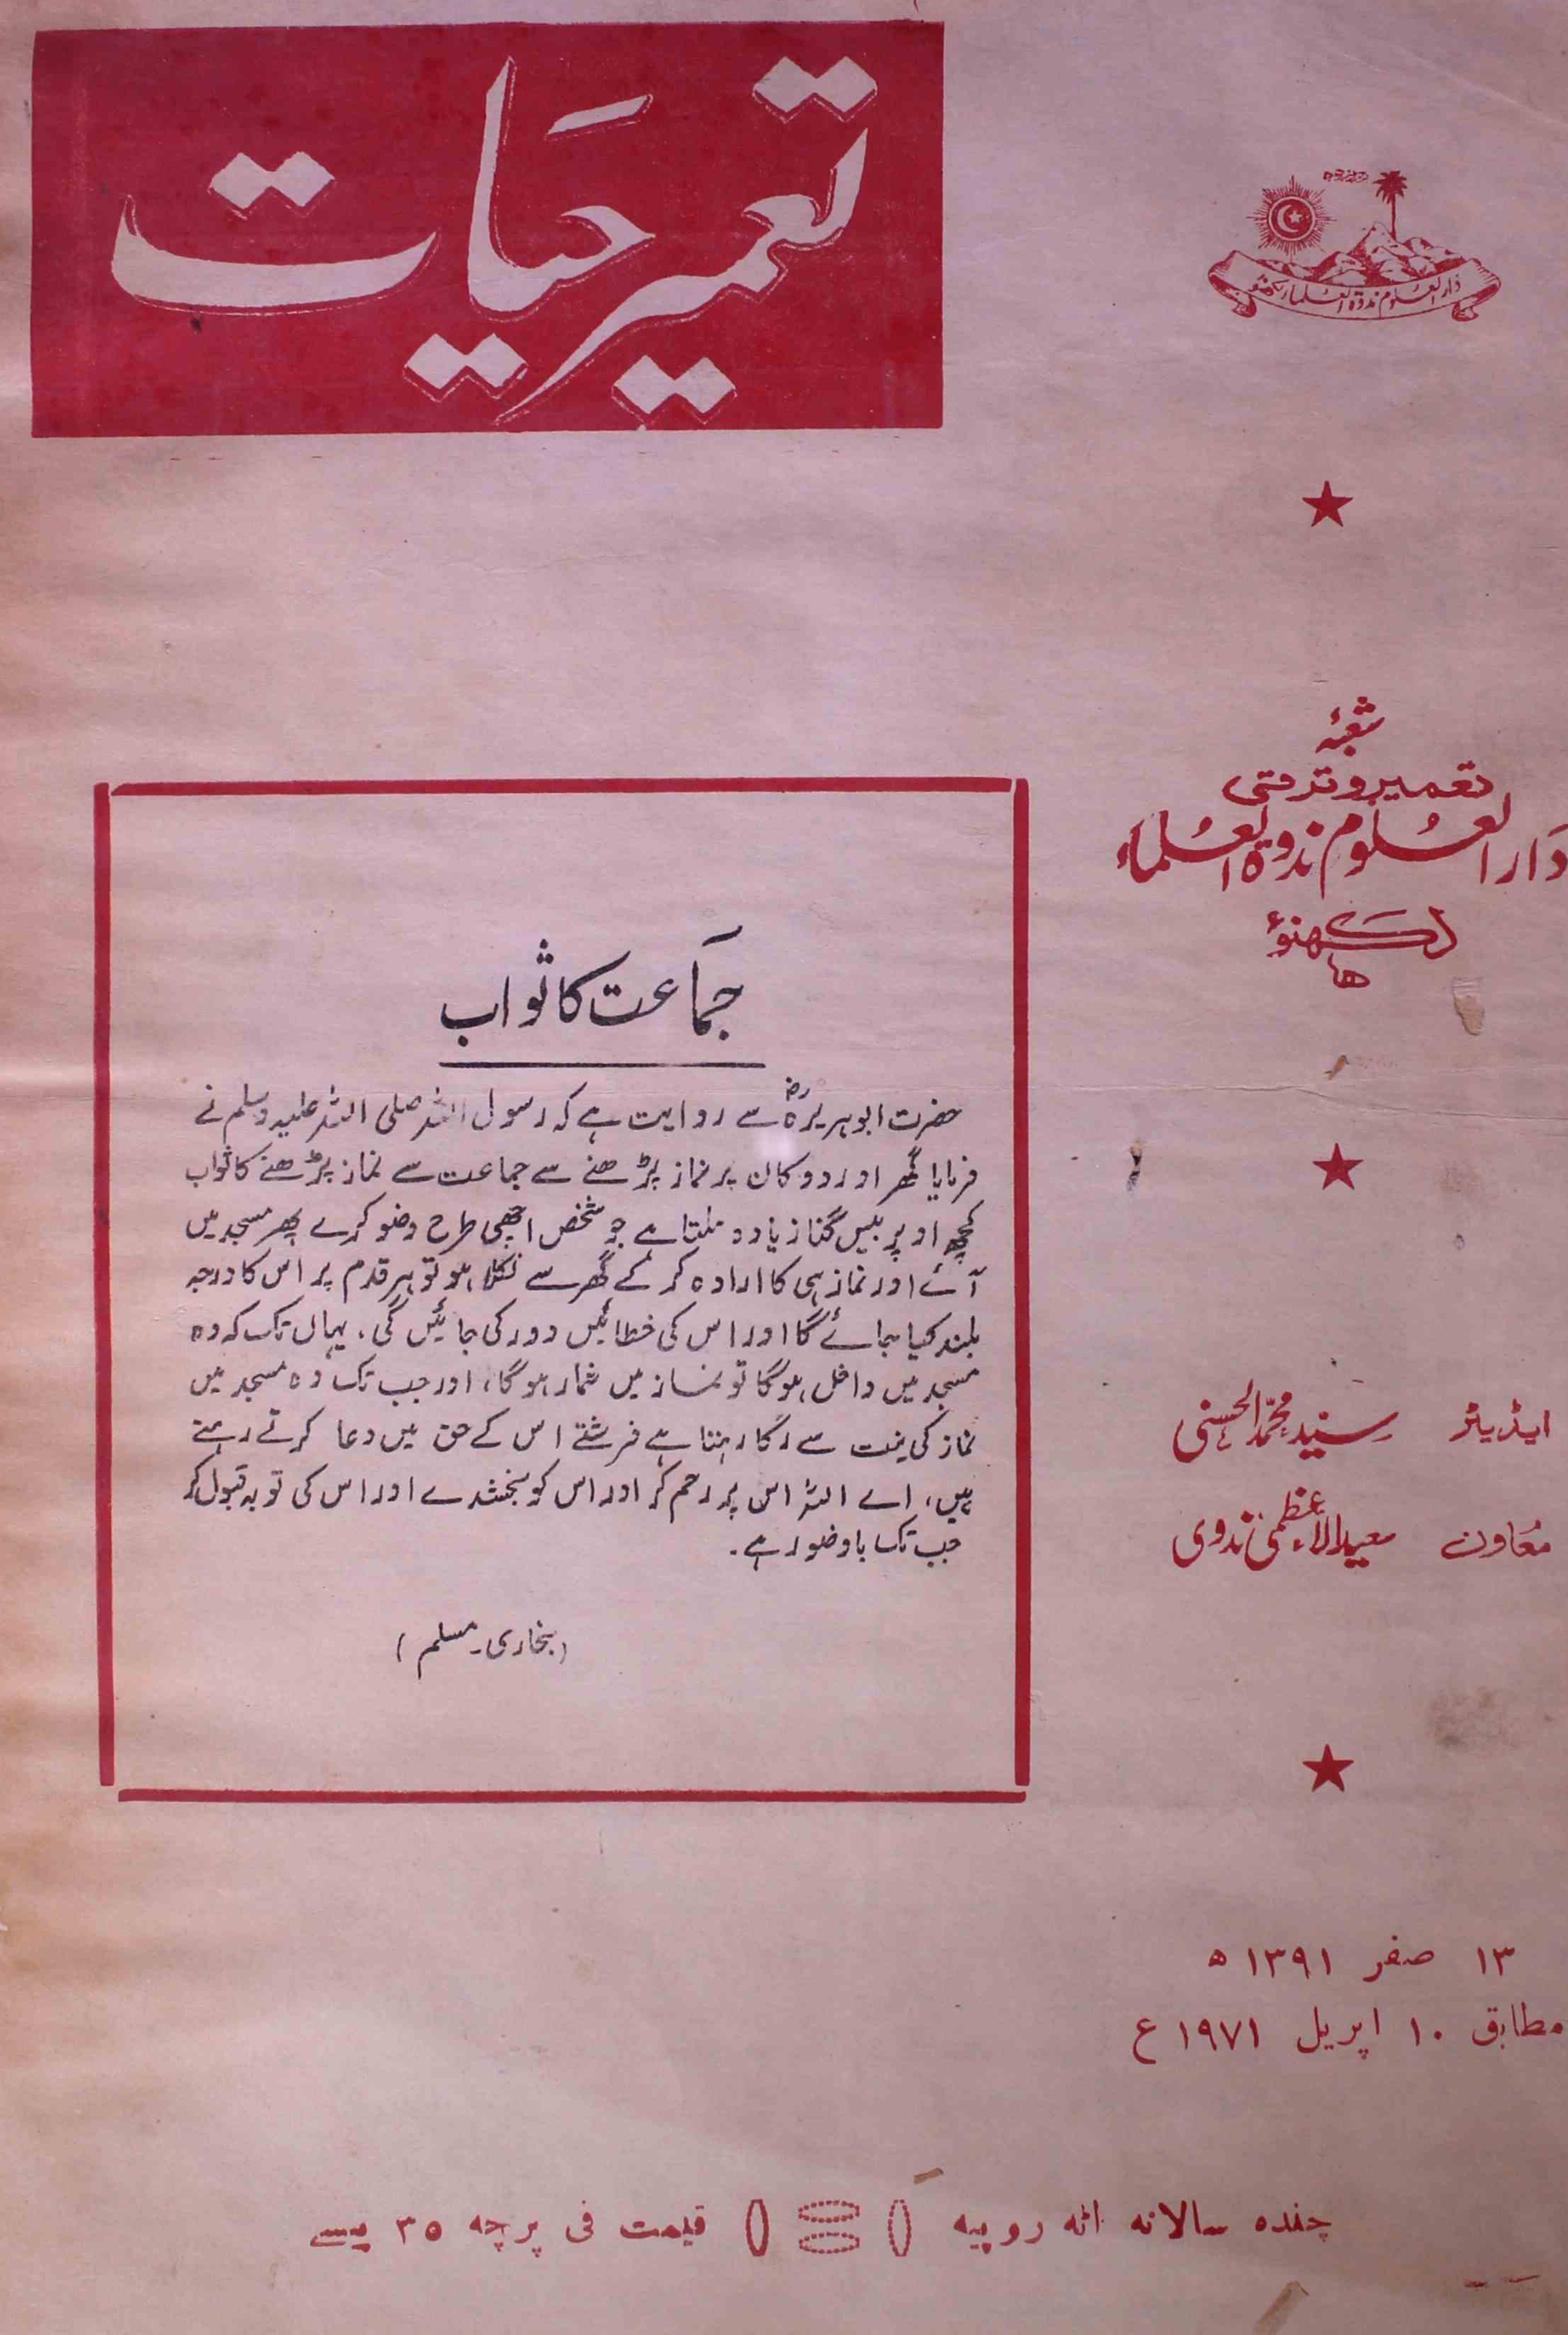 تعمیر حیات
دار العلوم ندوۃ العلماء لکھنؤ
شعبۂ
تعمیر و ترقی
دار العلوم ندوۃ العلماء
لکھنؤ
جماعت کا ثواب
حضرت ابوہریرہؓ سے روایت ہے کہ رسول اللہ صلی اللہ علیہ وسلم نے
فرمایا گھر اور دوکان پر نماز پڑھنے سے جماعت سے نماز پڑھنے کا ثواب
کچھ اوپر بیس گنا زیادہ ملتا ہے جو شخص اچھی طرح وضو کرے پھر مسجد میں
آئے اور نماز ہی کا ارادہ کر کے گھر سے نکلا ہو تو ہر قدم پر اس کا درجہ
بلند کیا جائے گا اور اس کی خطائیں دور کی جائیں گی، یہاں تک کہ وہ
مسجد میں داخل ہوگا تو نماز میں شمار ہوگا، اور جب تک وہ مسجد میں
نماز کی نیت سے رکا رہتا ہے فرشتے اس کے حق میں دعا کرتے رہتے
ہیں، اے اللہ اس پر رحم کر اور اس کو بخشدے اور اس کی توبہ قبول کر
جب تک باوضو رہے۔
(بخاری۔ مسلم)
ایڈیٹر سید محمد الحسنی
معاون سعید الاعظمی ندوی
۱۳ صفر ۱۳۹۱ ھ
مطابق ۱۰ اپریل ۱۹۷۱ ع
چندہ سالانہ اٹھ روپیہ قیمت فی پرچہ ۳۵ پیسے